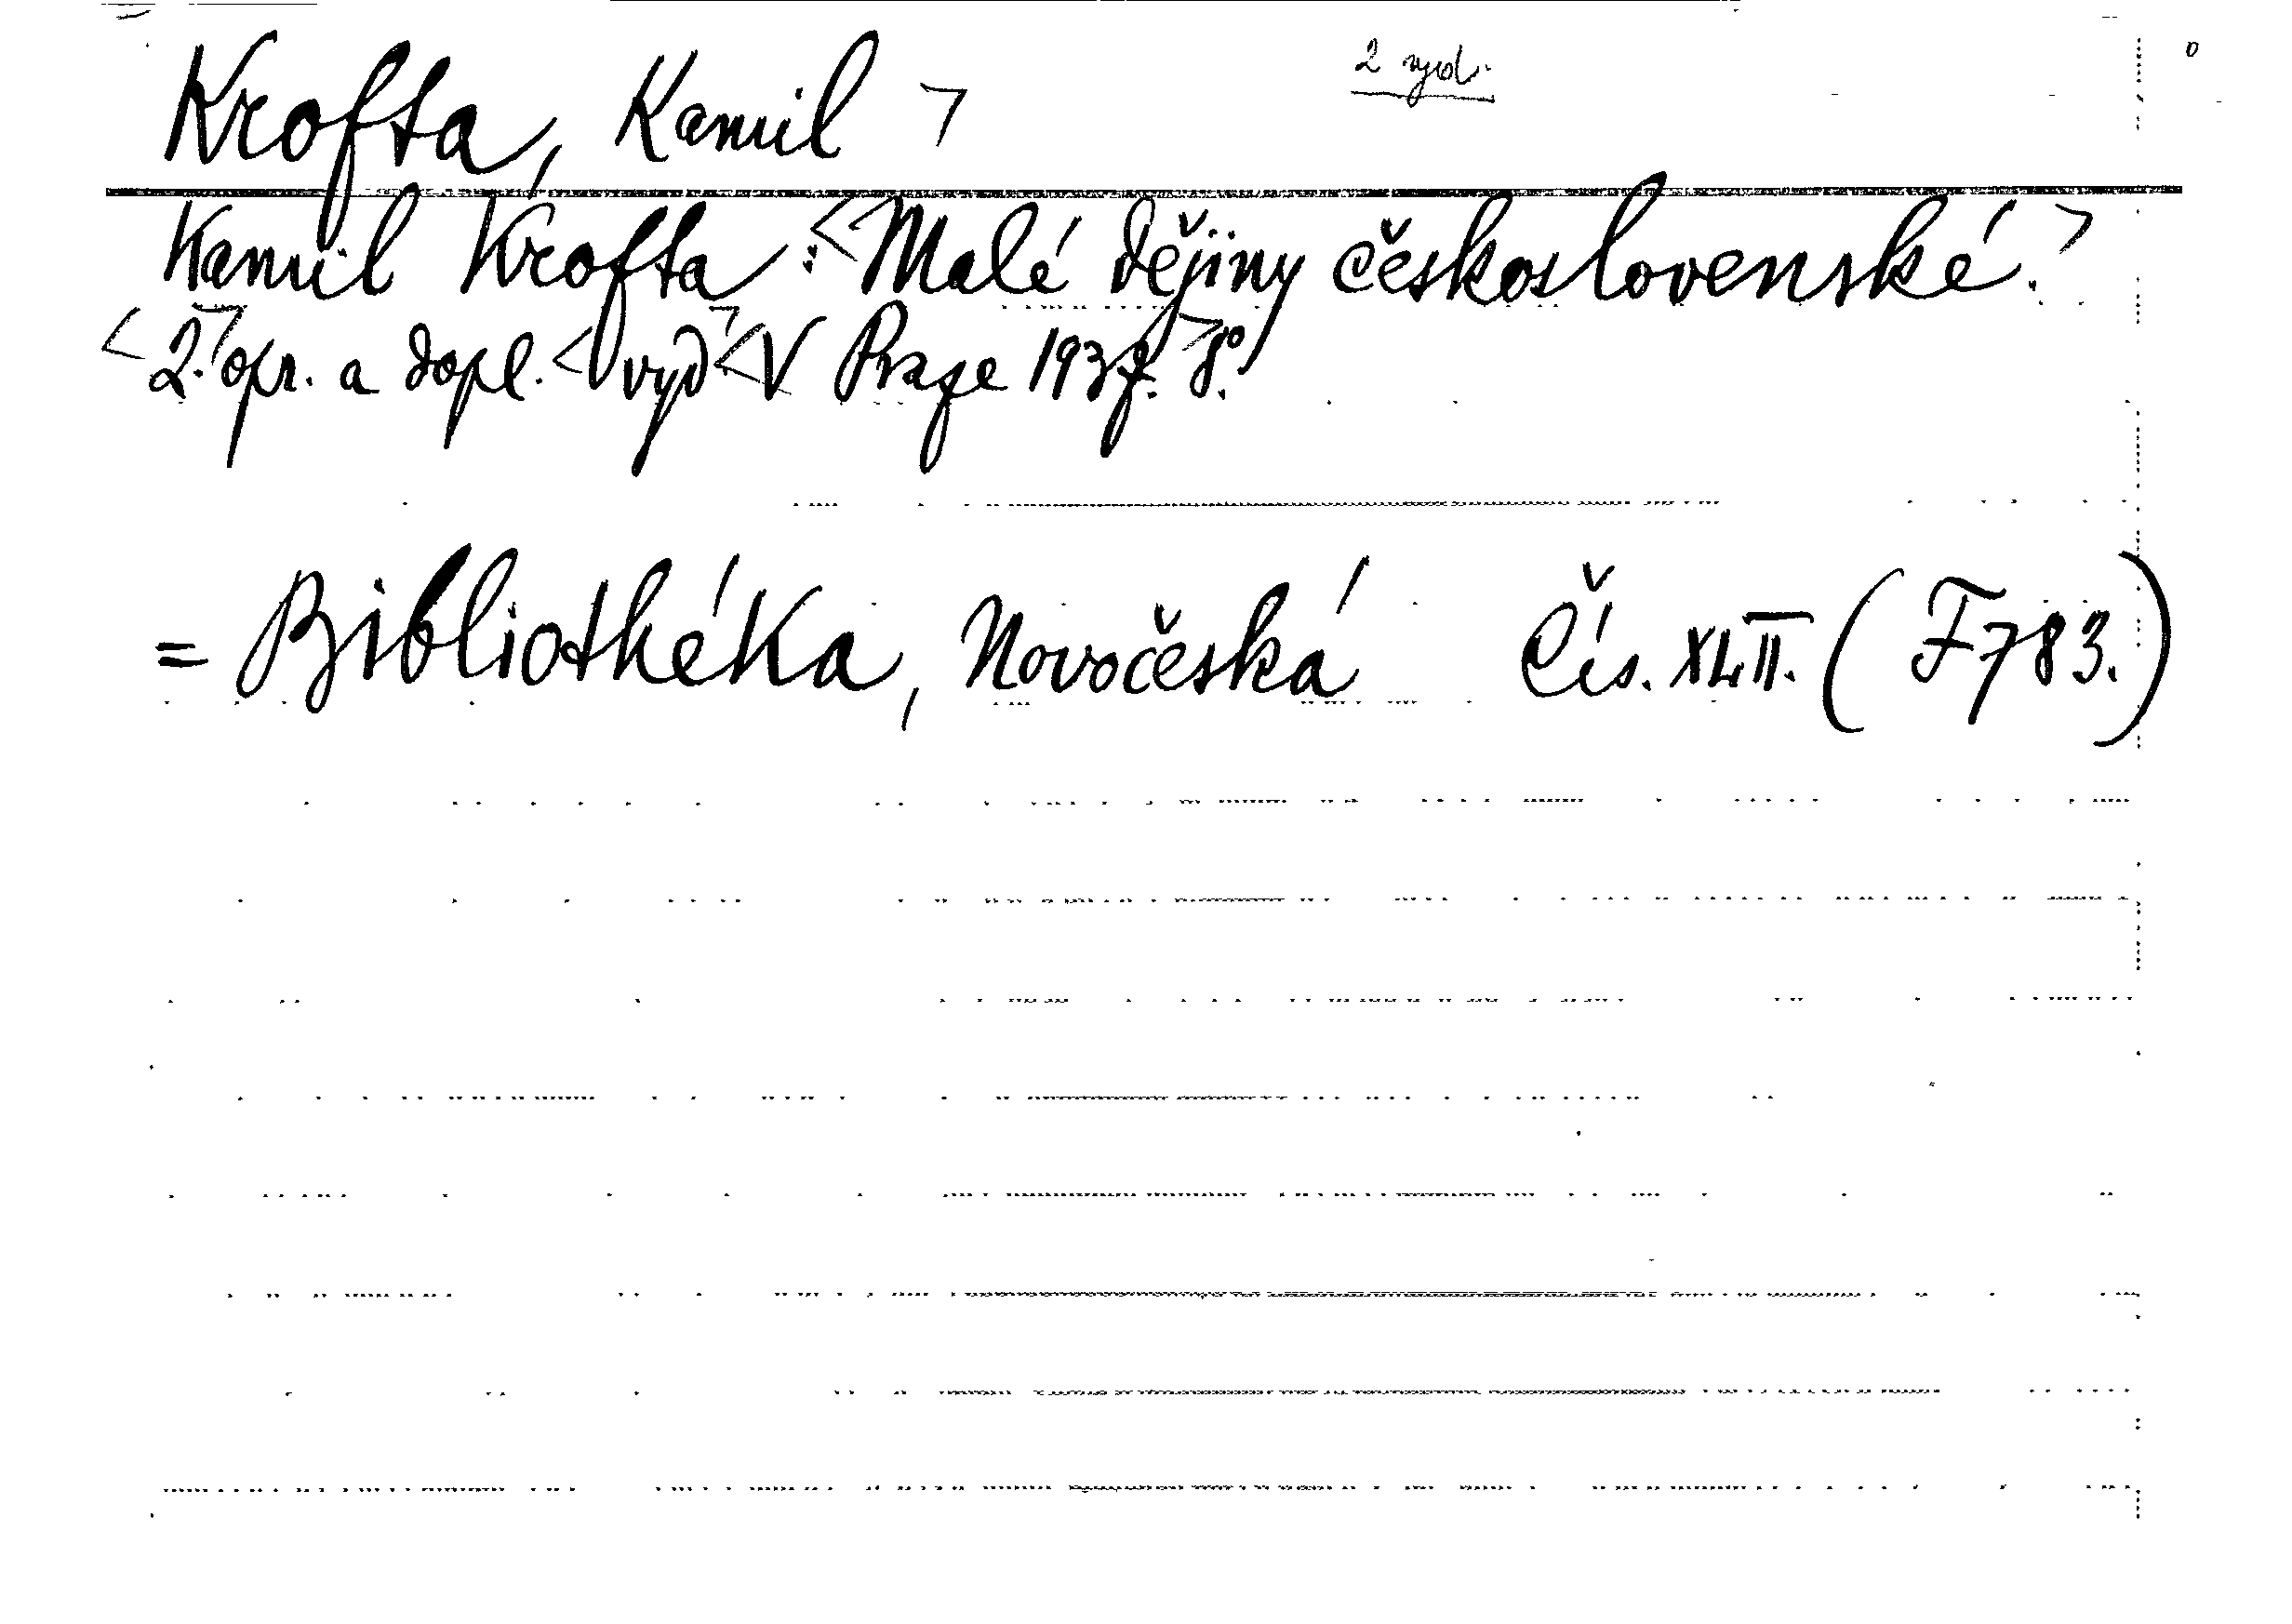 Krofta, Kamil ¬ 2 vyd.
Kamil Krofta: <Malé dějiny československé.>
<2.¬ opr. a dopl. <vyd¬ <V Praze 1937.> 8°.
= Bibliothéka, Novočeská Čís. XLII. (F783.)